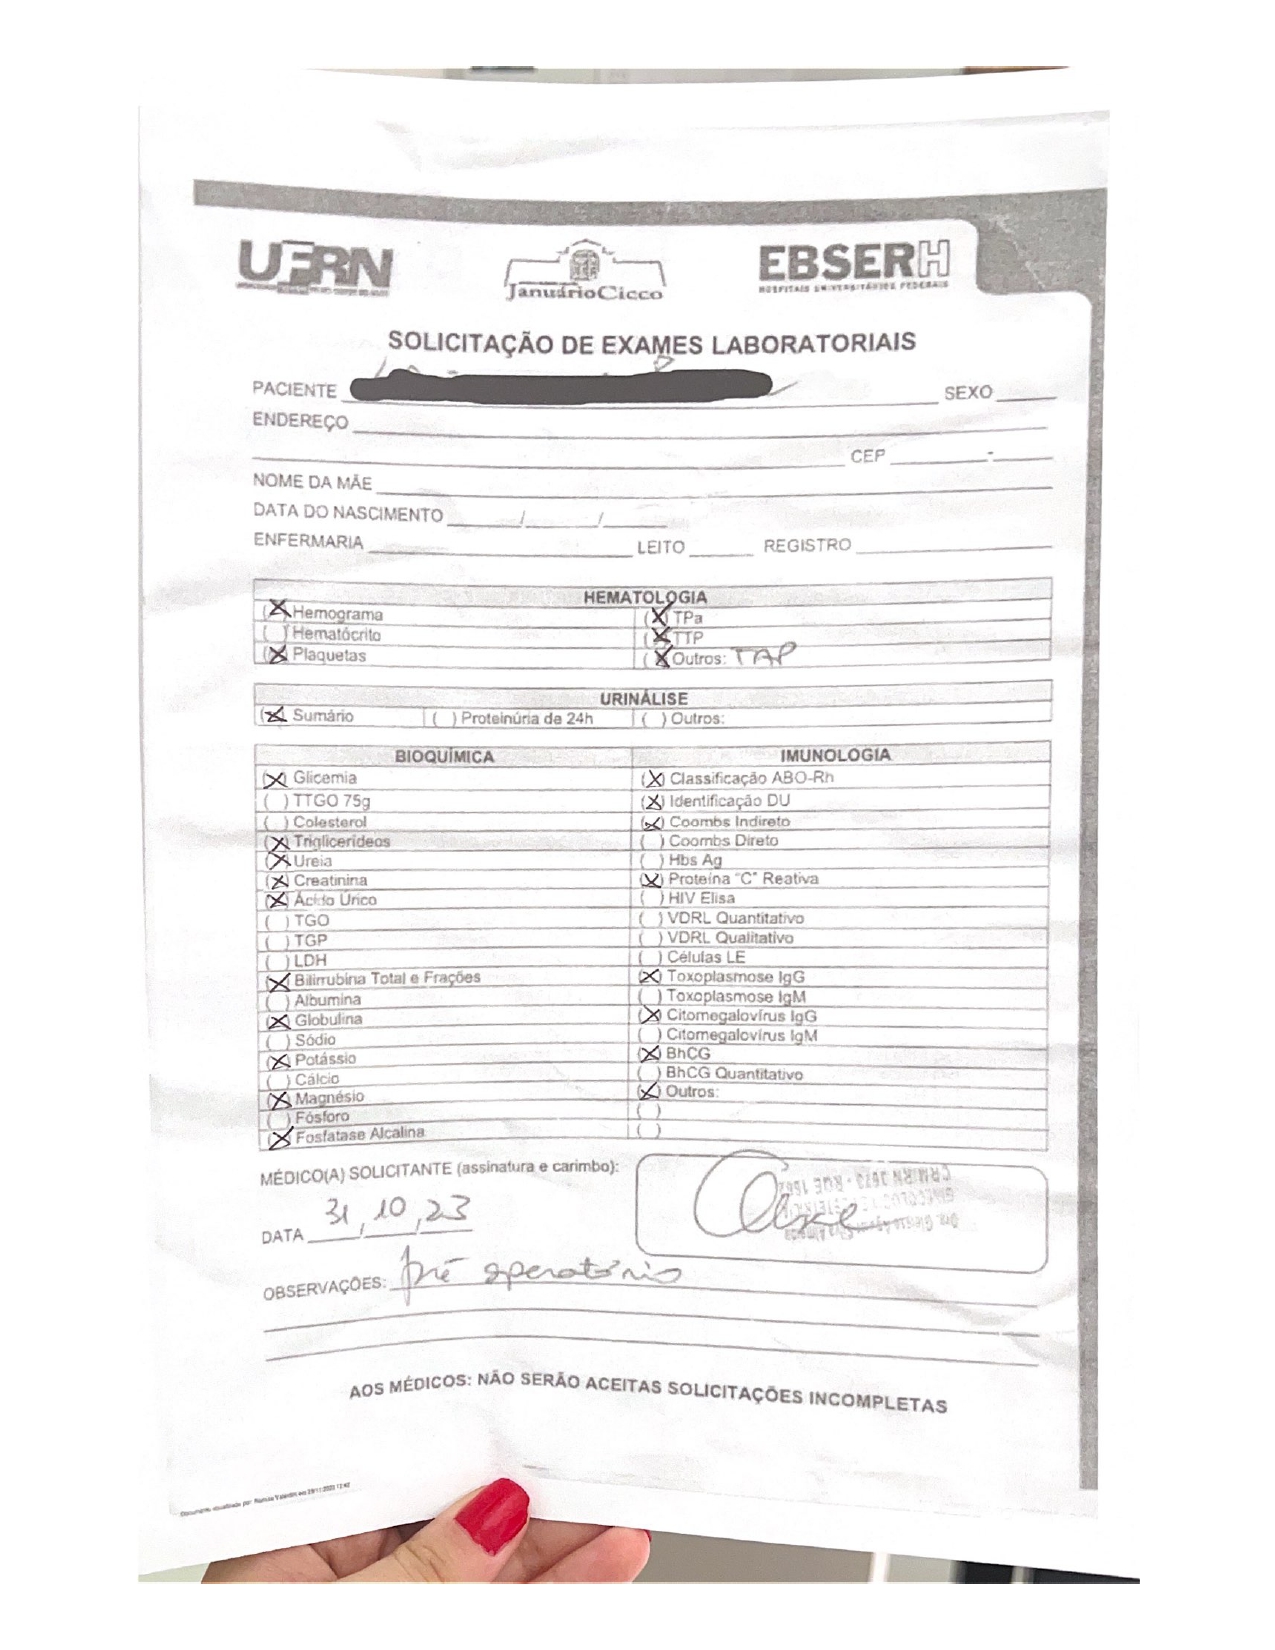 UFRN
JanuárioCicco
EBSERH
HOSPITAIS UNIVERSITÁRIOS FEDERAIS
SOLICITAÇÃO DE EXAMES LABORATORIAIS
PACIENTE ____ SEXO ____
ENDEREÇO ____
____ CEP ____-____
NOME DA MÃE ____
DATA DO NASCIMENTO ____/____/____
ENFERMARIA ____ LEITO ____ REGISTRO ____
HEMATOLOGIA
(X) Hemograma (X) TPa
( ) Hematócrito (X) TTP
(X) Plaquetas (X) Outros: TAP
URINÁLISE
(X) Sumário ( ) Proteinúria de 24h ( ) Outros:
BIOQUÍMICA IMUNOLOGIA
(X) Glicemia (X) Classificação ABO-Rh
( ) TTGO 75g (X) Identificação DU
( ) Colesterol (X) Coombs Indireto
(X) Triglicerídeos ( ) Coombs Direto
(X) Ureia ( ) Hbs Ag
(X) Creatinina (X) Proteína "C" Reativa
(X) Ácido Úrico ( ) HIV Elisa
( ) TGO ( ) VDRL Quantitativo
( ) TGP ( ) VDRL Qualitativo
( ) LDH ( ) Células LE
(X) Bilirrubina Total e Frações (X) Toxoplasmose IgG
( ) Albumina ( ) Toxoplasmose IgM
(X) Globulina (X) Citomegalovírus IgG
( ) Sódio ( ) Citomegalovírus IgM
(X) Potássio (X) BhCG
( ) Cálcio ( ) BhCG Quantitativo
(X) Magnésio (X) Outros:
( ) Fósforo ( )
(X) Fosfatase Alcalina ( )
MÉDICO(A) SOLICITANTE (assinatura e carimbo):
DATA 31/10/23
OBSERVAÇÕES: pré operatório
AOS MÉDICOS: NÃO SERÃO ACEITAS SOLICITAÇÕES INCOMPLETAS